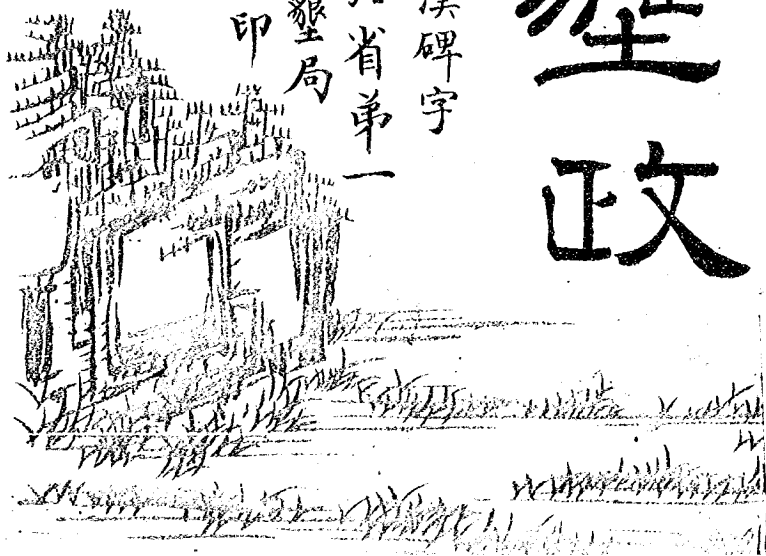 墾政
漢碑字
省弟一
墾局
印